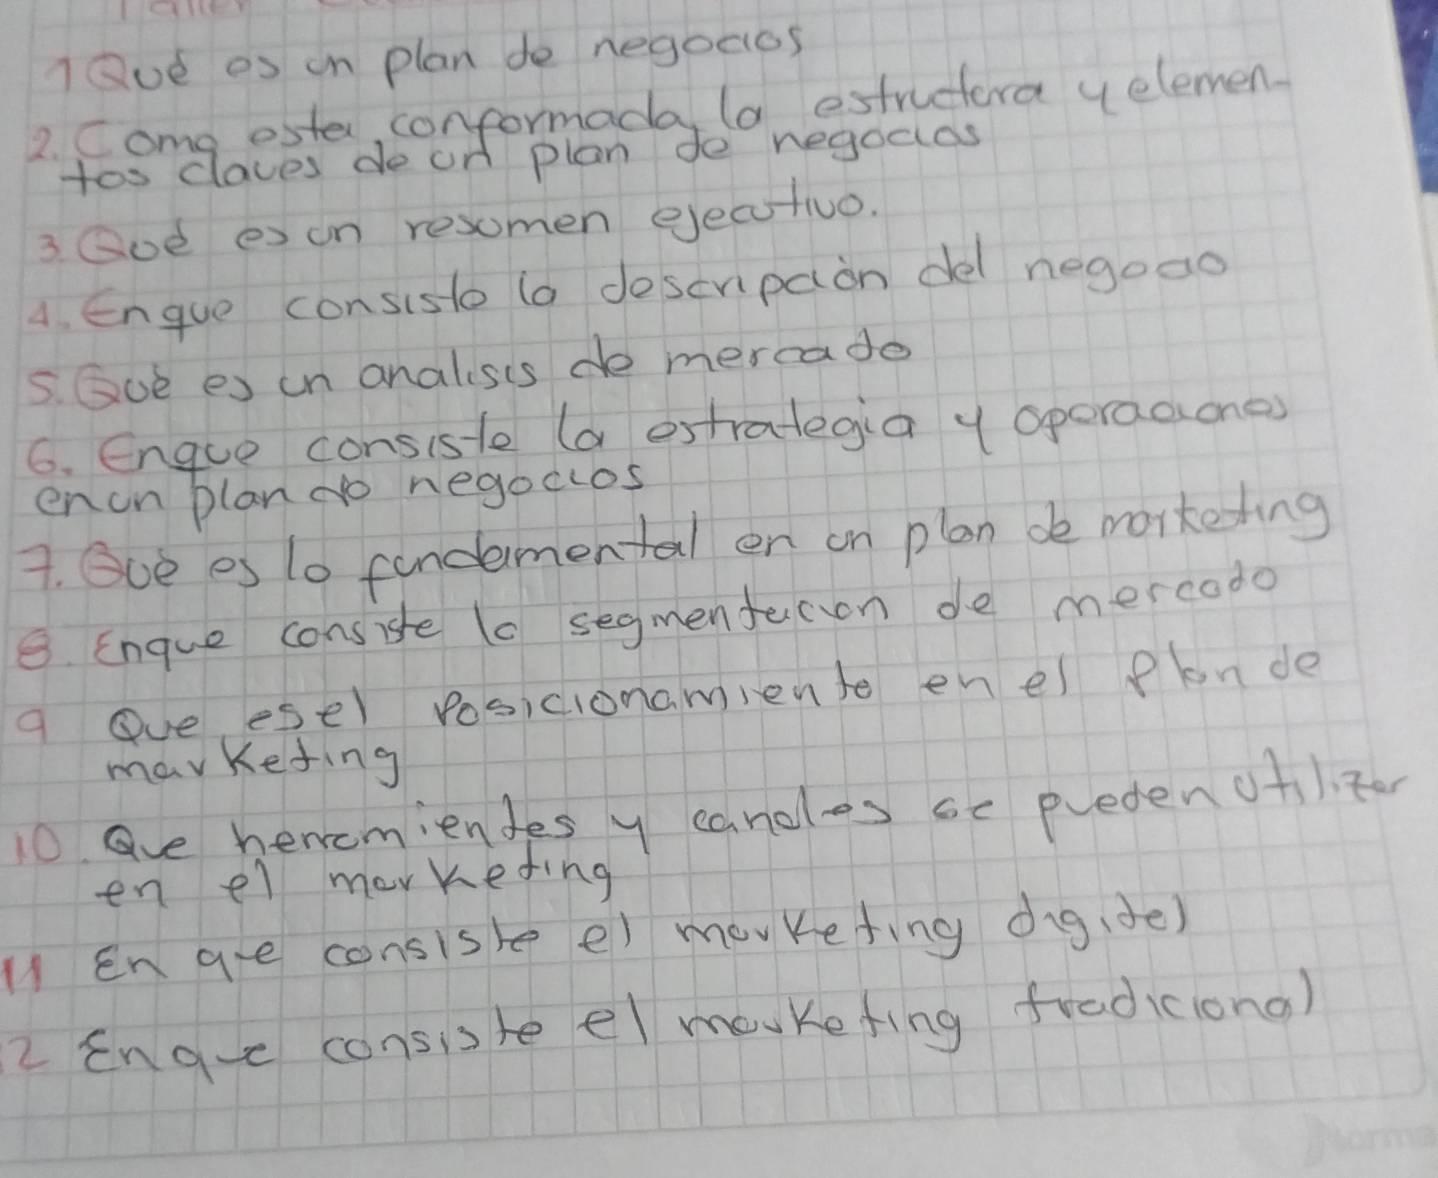 Taller
1 Qué es un plan de negocios
2. Como esta conformada la estructura y elemen-
tos claves de un plan de negocios
3. Qué es un resumen ejecutivo.
4. En que consiste la descripción del negocio
5. Qué es un analisis de mercado
6. En que consiste la estrategia y operaciones
en un plan de negocios
7. Qué es lo fundamental en un plan de marketing
8. En que consiste la segmentacion de mercado
9 Que es el Posicionamiento en el Plan de
marketing
10. Que herramientas y canales se pueden utilizar
en el marketing
11 En que consiste el marketing digital
12 En que consiste el marketing tradicional
Norma